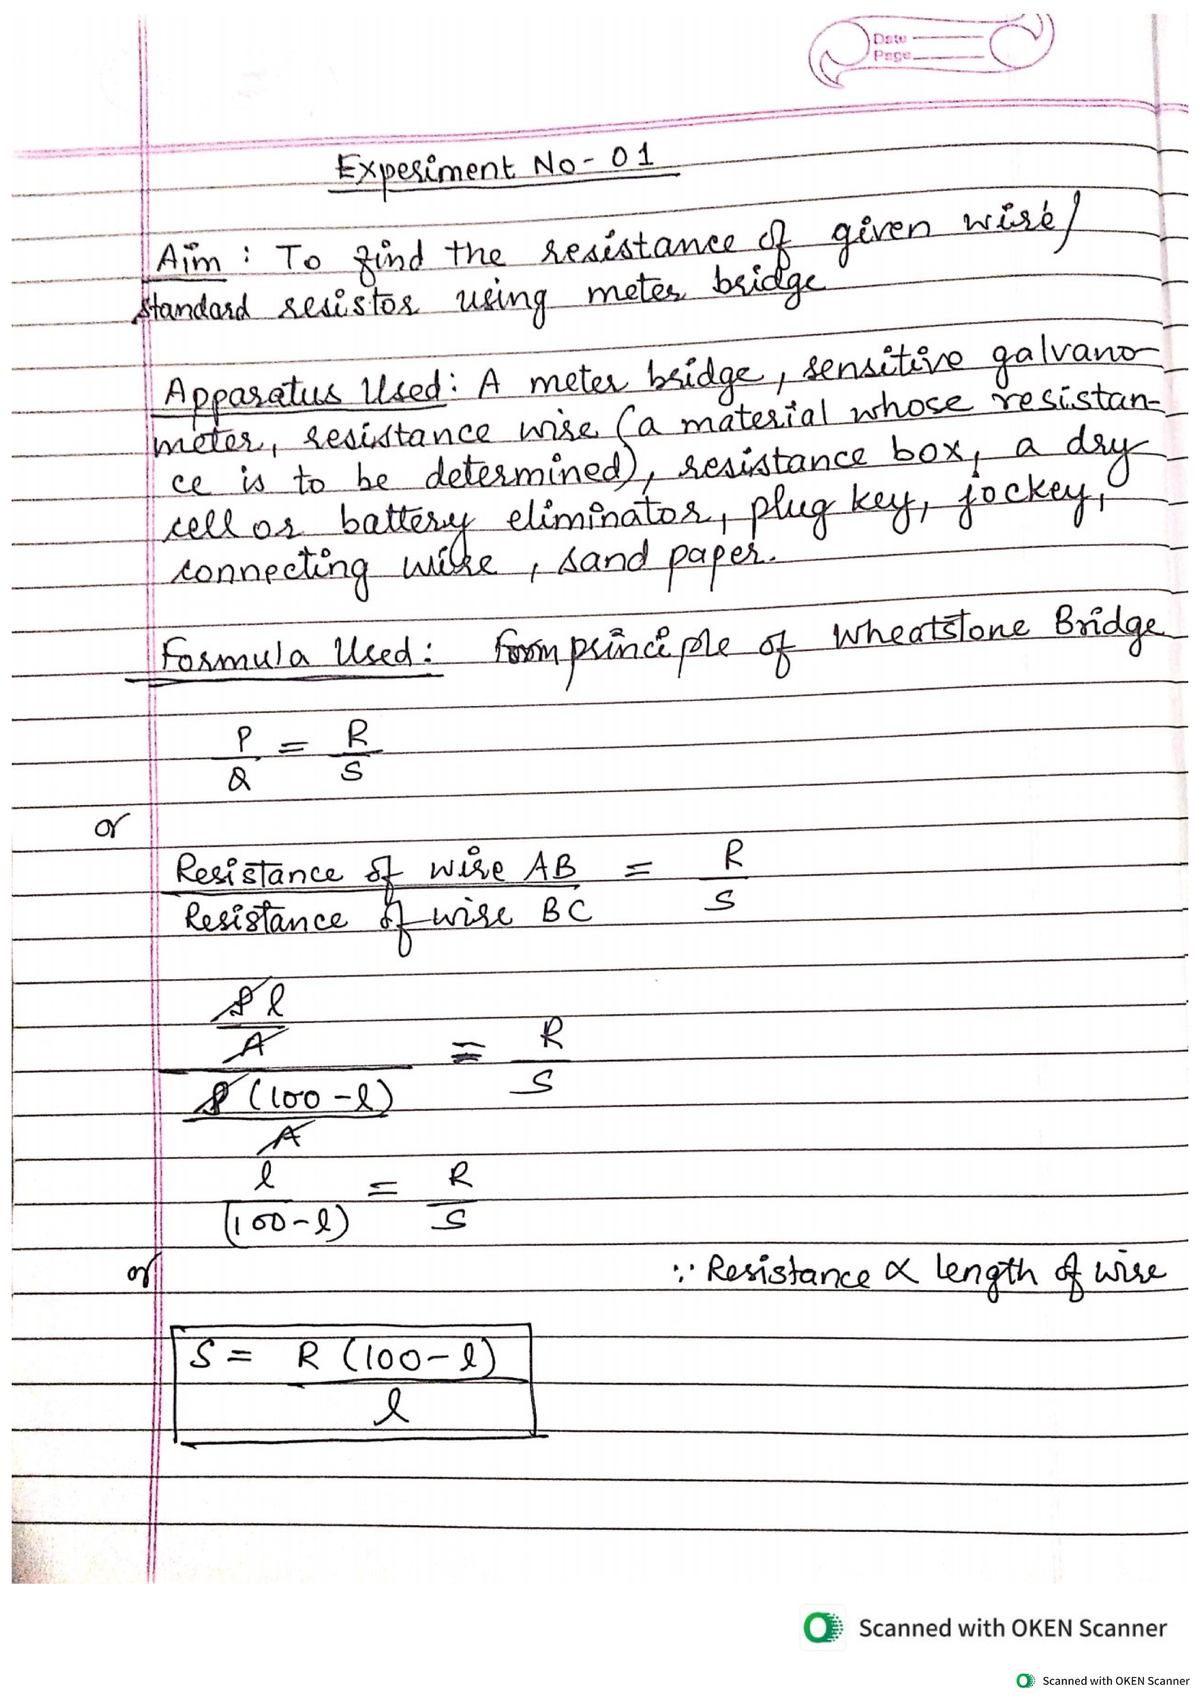 Date
Page
Experiment No - 01
Aim : To find the resistance of given wire/
standard resistor using meter bridge
Apparatus Used : A meter bridge, sensitive galvano
meter, resistance wire (a material whose resistan-
ce is to be determined), resistance box, a dry
cell or battery eliminator, plug key, jockey,
connecting wire, sand paper.
Formula Used : from principle of Wheatstone Bridge
P/Q = R/S
or
Resistance of wire AB / Resistance of wire BC = R/S
(ρl/A) / (ρ(100-l)/A) = R/S
l/(100-l) = R/S
or
∵ Resistance ∝ length of wire
S = R (100-l) / l
Scanned with OKEN Scanner
Scanned with OKEN Scanner